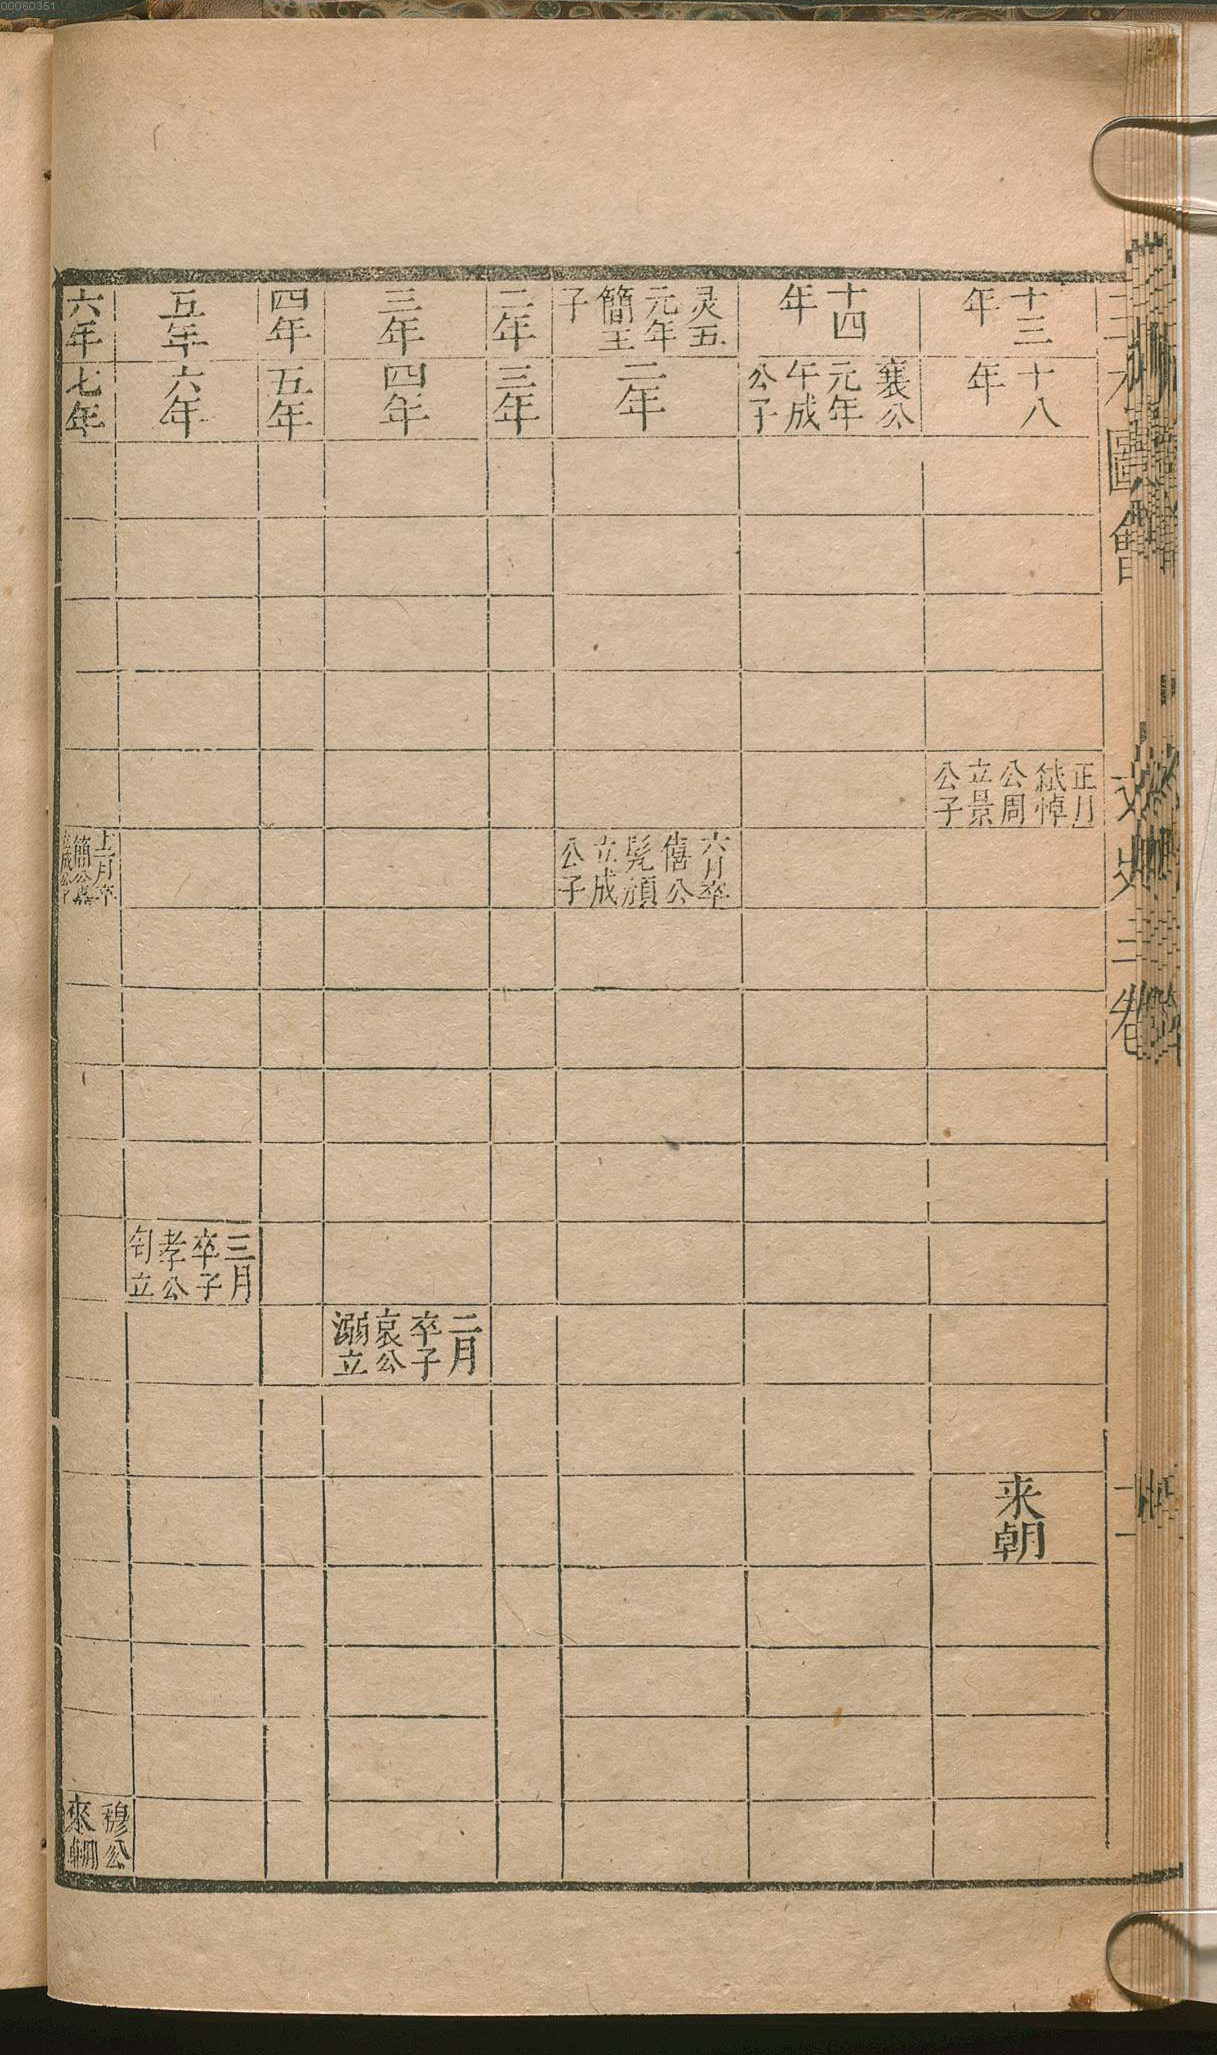 00060351
十三
年
十八
年
正月
弒悼
公周
立景
公子
来朝
十四
年
襄公
元年
午成
公子
灵五
元年
簡王
子
二年
六月卒
僖公
髡頑
立成
公子
二年
三年
三年
四年
二月
卒子
哀公
溺立
四年
五年
五年
六年
三月
卒子
孝公
匄立
六年
七年
十二月卒
簡公嘉
立成公子
穆公
來朝
圖會
文史三卷